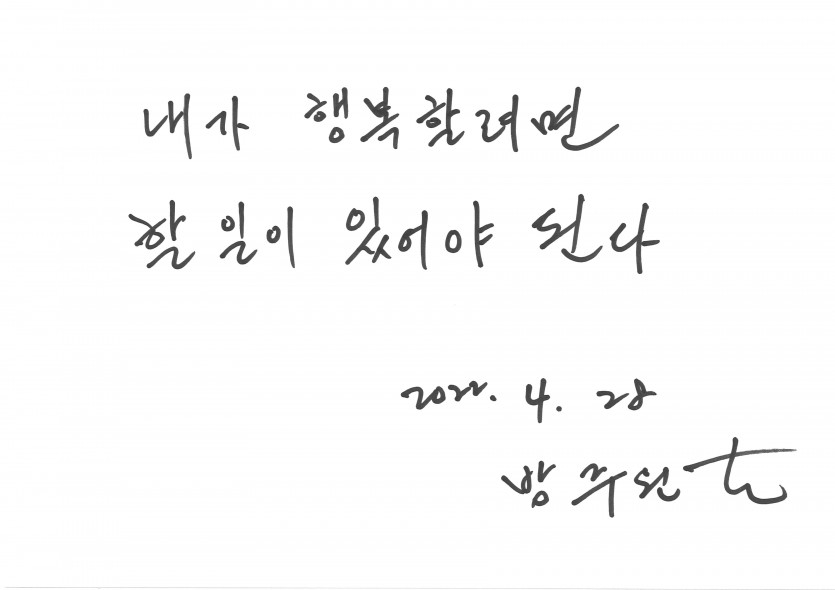 내가 행복할려면
할 일이 있어야 된다
2022. 4. 28
방주원